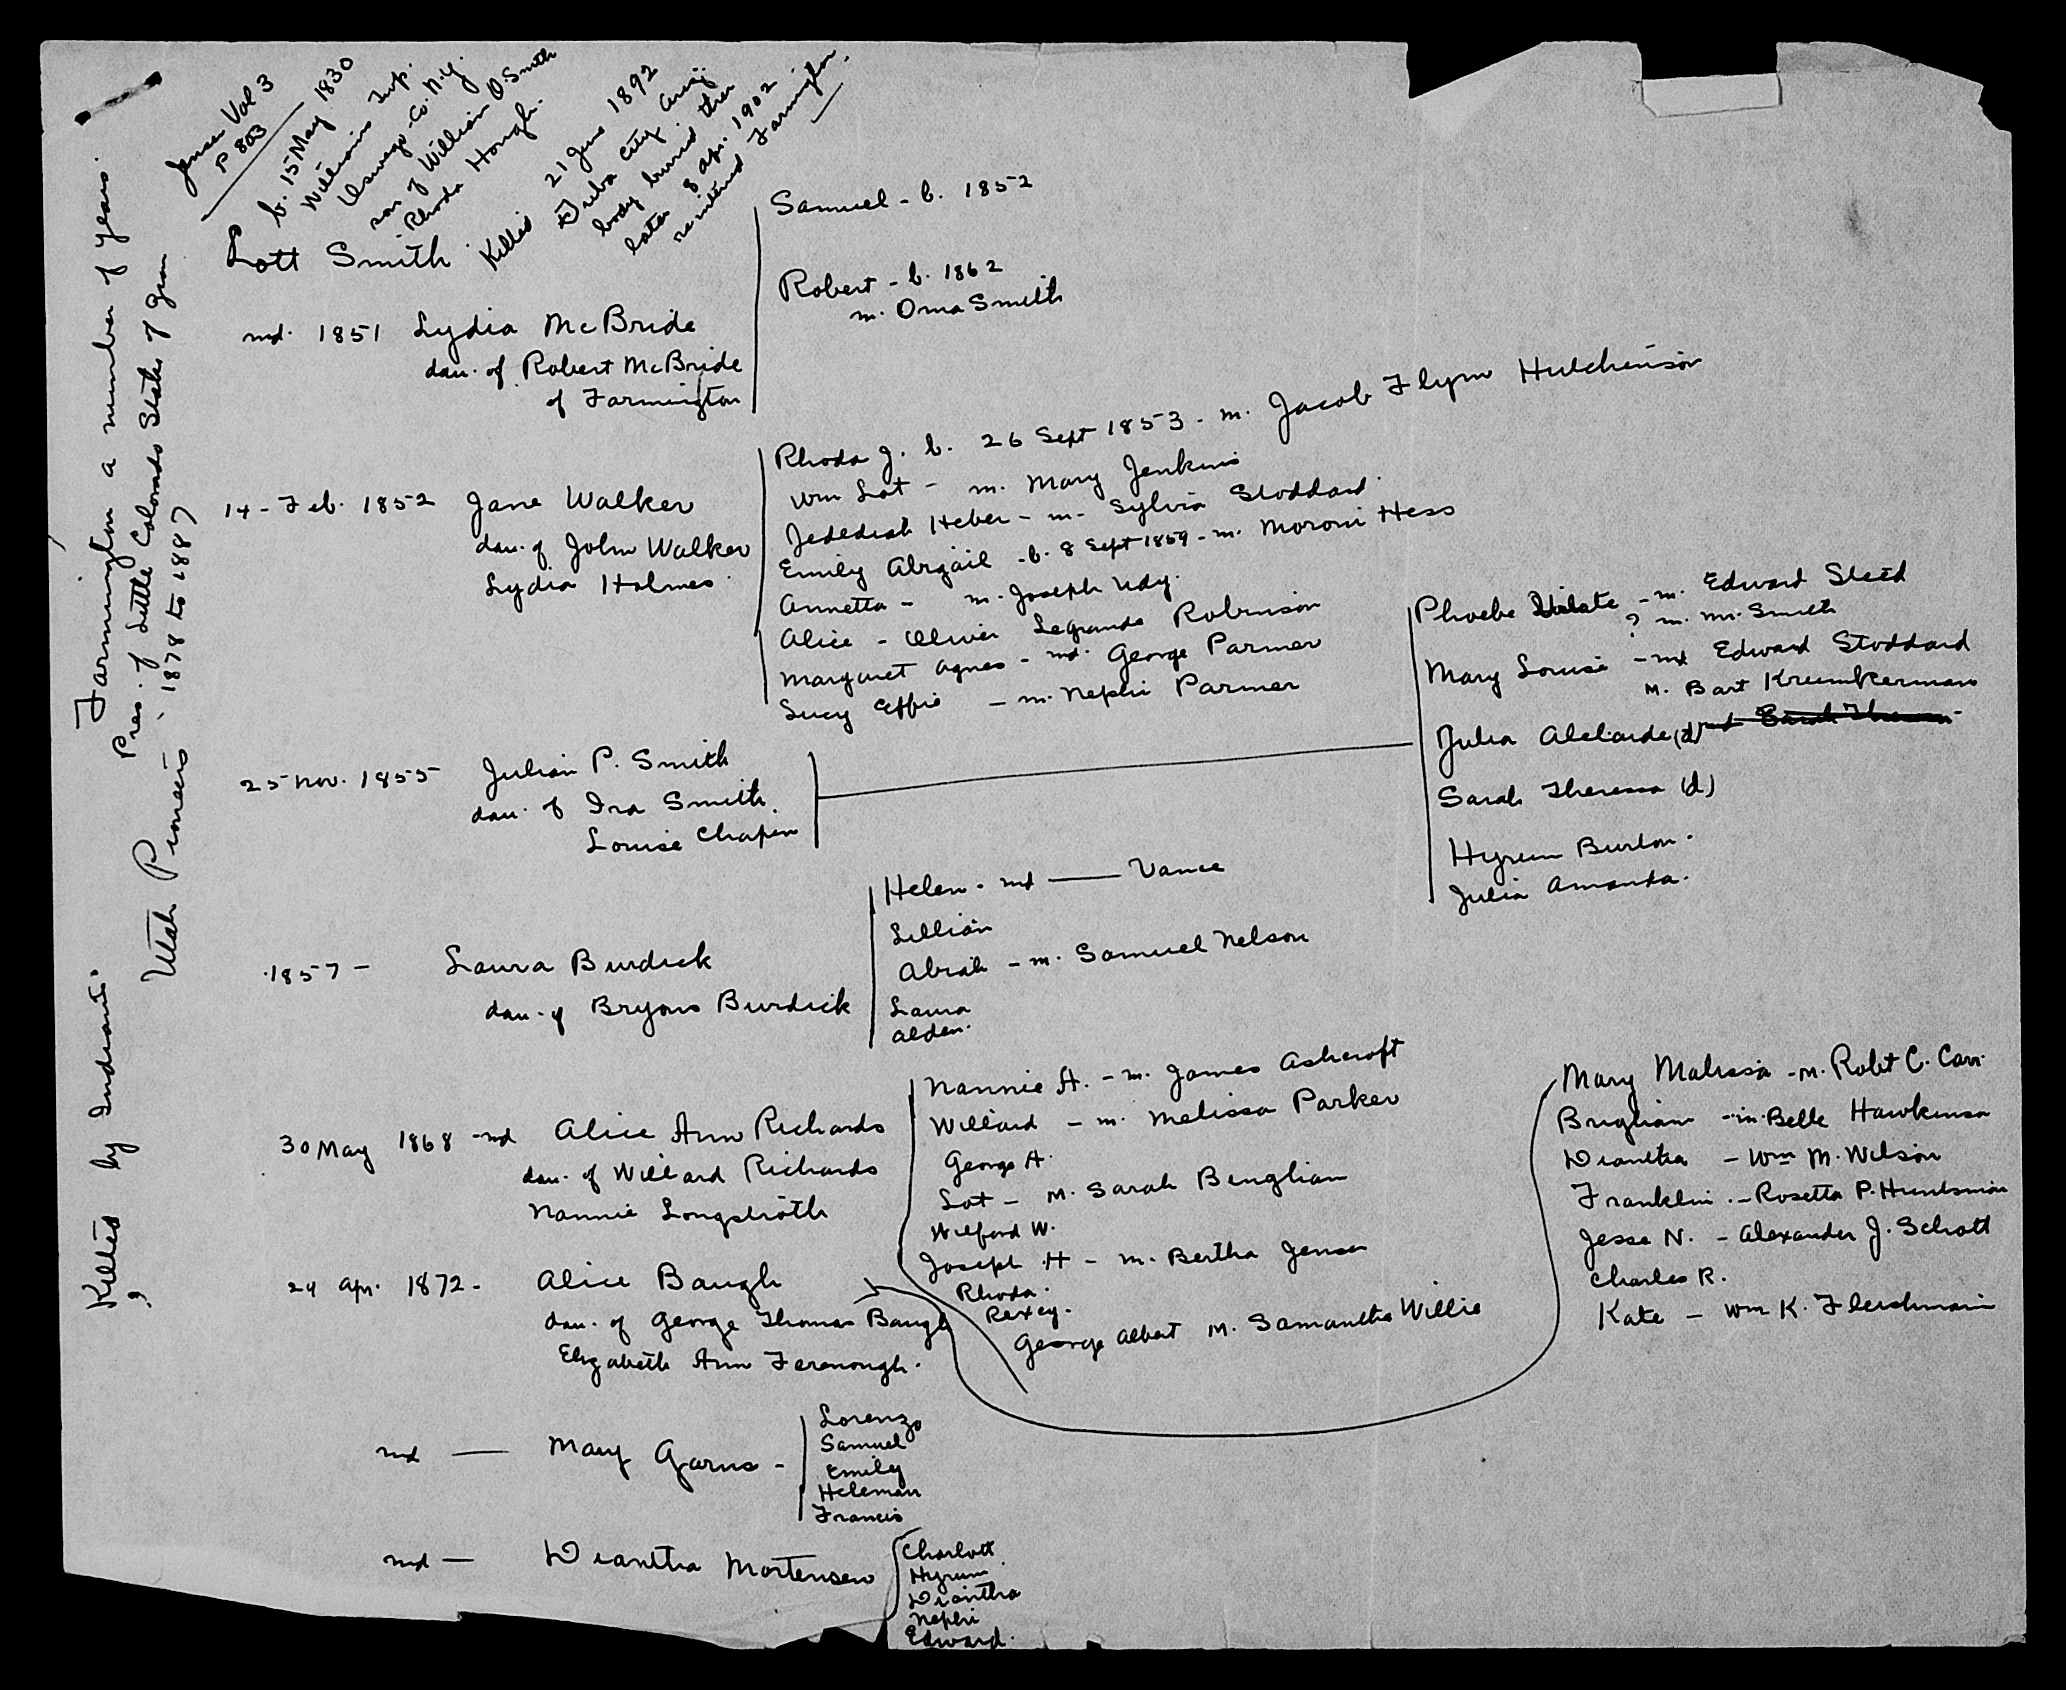 Jensen Vol 3
P 803
b. 15 May 1830
Williams Twp.
Oswego Co. N.Y.
son of William O. Smith
Rhoda Hough.
Lott Smith
Killed 21 June 1892
Tuba City Ariz
body buried there
later 8 Apr. 1902
reinterred Farmington.
Farmington a number of years.
Pres. of Little Colorado Stake of Zion
1878 to 1887
Utah Pioneers
Killed by Indians.
?
md. 1851 Lydia McBride
dau. of Robert McBride
of Farmington
Samuel - b. 1852
Robert - b. 1862
m. Oma Smith
14 - Feb. 1852 Jane Walker
dau. of John Walker
Lydia Holmes.
Rhoda J. b. 26 Sept 1853 - m. Jacob Flynn Hutchinson
Wm Lot - m. Mary Jenkins
Jedediah Heber - m - Sylvia Stoddard.
Emily Abigail - b. 8 Sept 1859 - m. Moroni Hess
Annetta - m. Joseph Udy.
Alice - Oliver Legrande Robinson
Margaret Agnes - md. George Parmer
Lucy Effie - m. Nephi Parmer
25 Nov. 1855 Julian P. Smith
dau. of Ira Smith
Louise Chapin
Phoebe - m. Edward Steed
? m. Mr. Smith
Mary Louise - md Edward Stoddard
M. Bart Krumkerman
Julia Adelaide (d)
Sarah Theresa (d)
Hyrum Burton.
Julia Amanda.
1857 - Laura Burdick
dau. of Bryons Burdick
Helen - md — Vance
Lillian
Abiah - m. Samuel Nelson
Laura
Alden.
30 May 1868 - md Alice Ann Richards
dau. of Willard Richards
Nannie Longstroth
Nannie A. - m. James Ashcroft
Willard - m. Melissa Parker
George A.
Lot - M. Sarah Bingham
Wilford W.
Joseph H - m. Bertha Jensen
Rhoda.
Rexey.
George Albert M. Samantha Willis
24 Apr. 1872 - Alice Baugh
dau. of George Thomas Baugh
Elizabeth Ann Fernough.
Mary Malissa - M. Robt C. Carr.
Brigham - m. Belle Hawkinson
Diantha - Wm M. Wilson
Franklin - Rosetta P. Huntsman
Jesse N. - Alexander J. Schott
Charles R.
Kate - Wm K. Fleishmain
md — Mary Garns -
Lorenzo
Samuel
Emily
Heleman
Francis
md — Diantha Mortensen
Charlott
Hyrum
Diantha
Nephi
Edward.